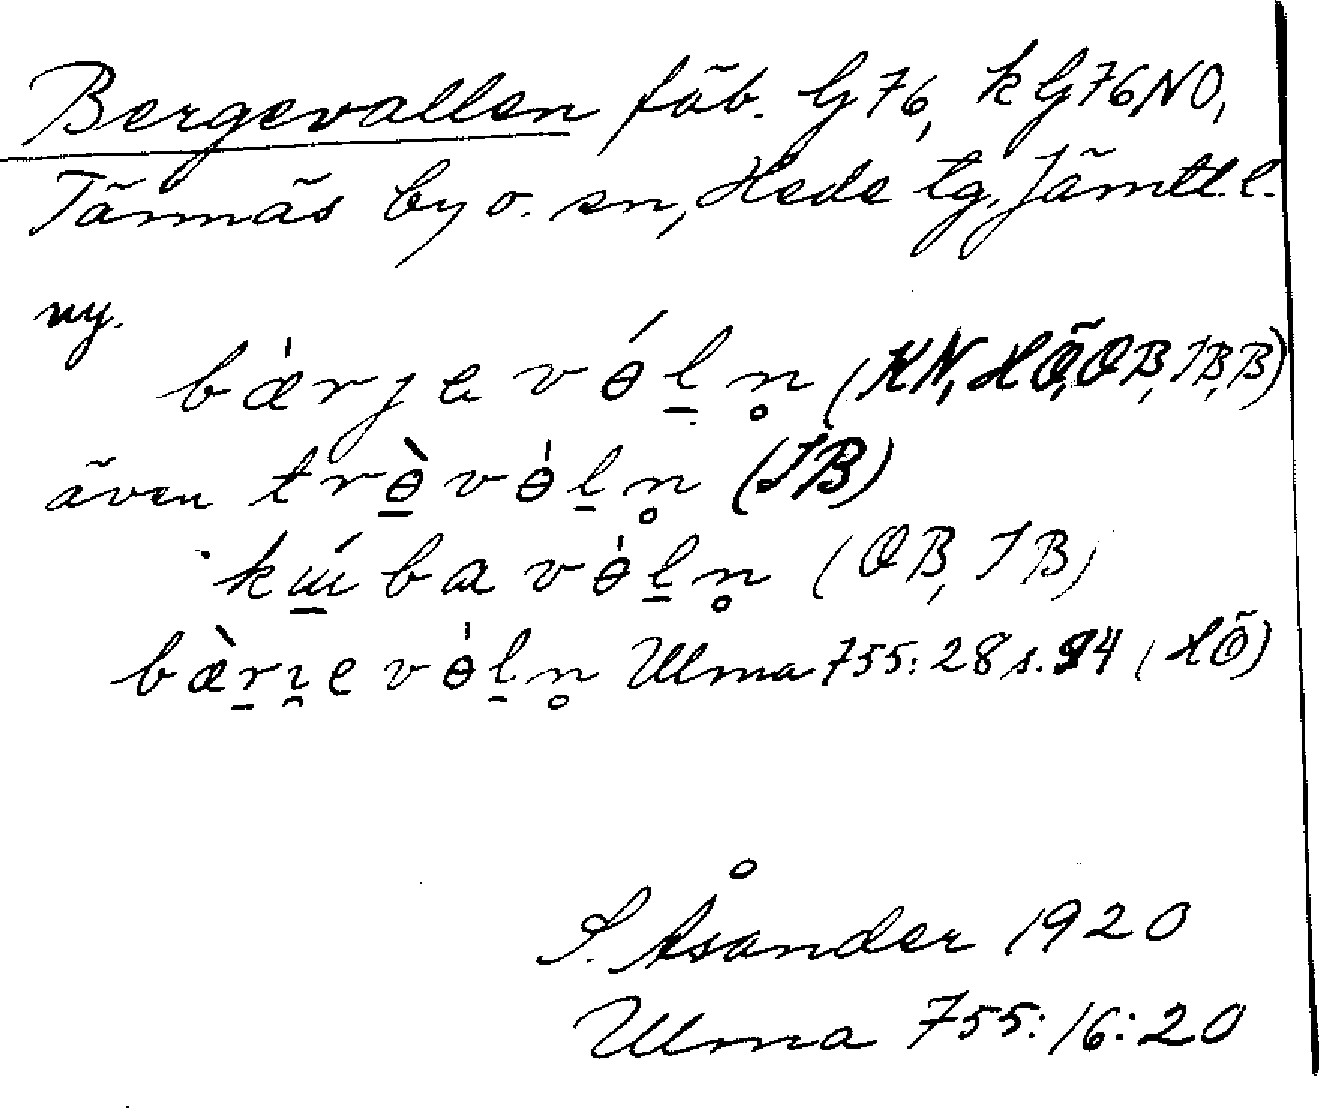 Bergevallen fäb. G76, kG76NO,
Tännäs by o. sn, Hede tg. Jämtl. l.
ny.
bæ̀rjevɵ́l̠n̥ (KN, HÖ, OB, IB, B)
även trɵ̠̀vɵ̀l̠n̥ (IB)
kɯ̠́bavɵ̀l̠n̥ (OB, IB)
bæ̀r̠ı̯evɵ̀l̠n̥ Ulma 755:28 s. 94 (HÖ)
S. Åsander 1920
Ulma 755:16:20